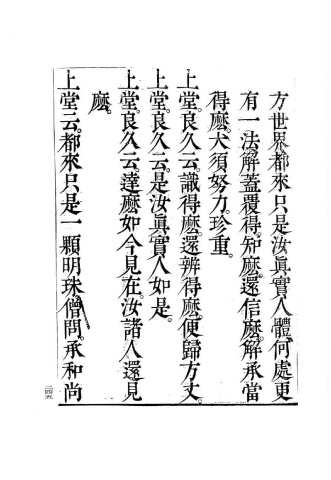 方世界都來只是汝眞實人體。何處更
有一法解蓋覆得。知麽。還信麽。解承當
得麽。大須努力。珍重。
上堂。良久云。識得麽。還辨得麽。便歸方丈。
上堂。良久云。是汝眞實人如是。
上堂。良久云。達麽如今見在。汝諸人還見
麽。
上堂云。都來只是一顆明珠。僧問。承和尚
二四五